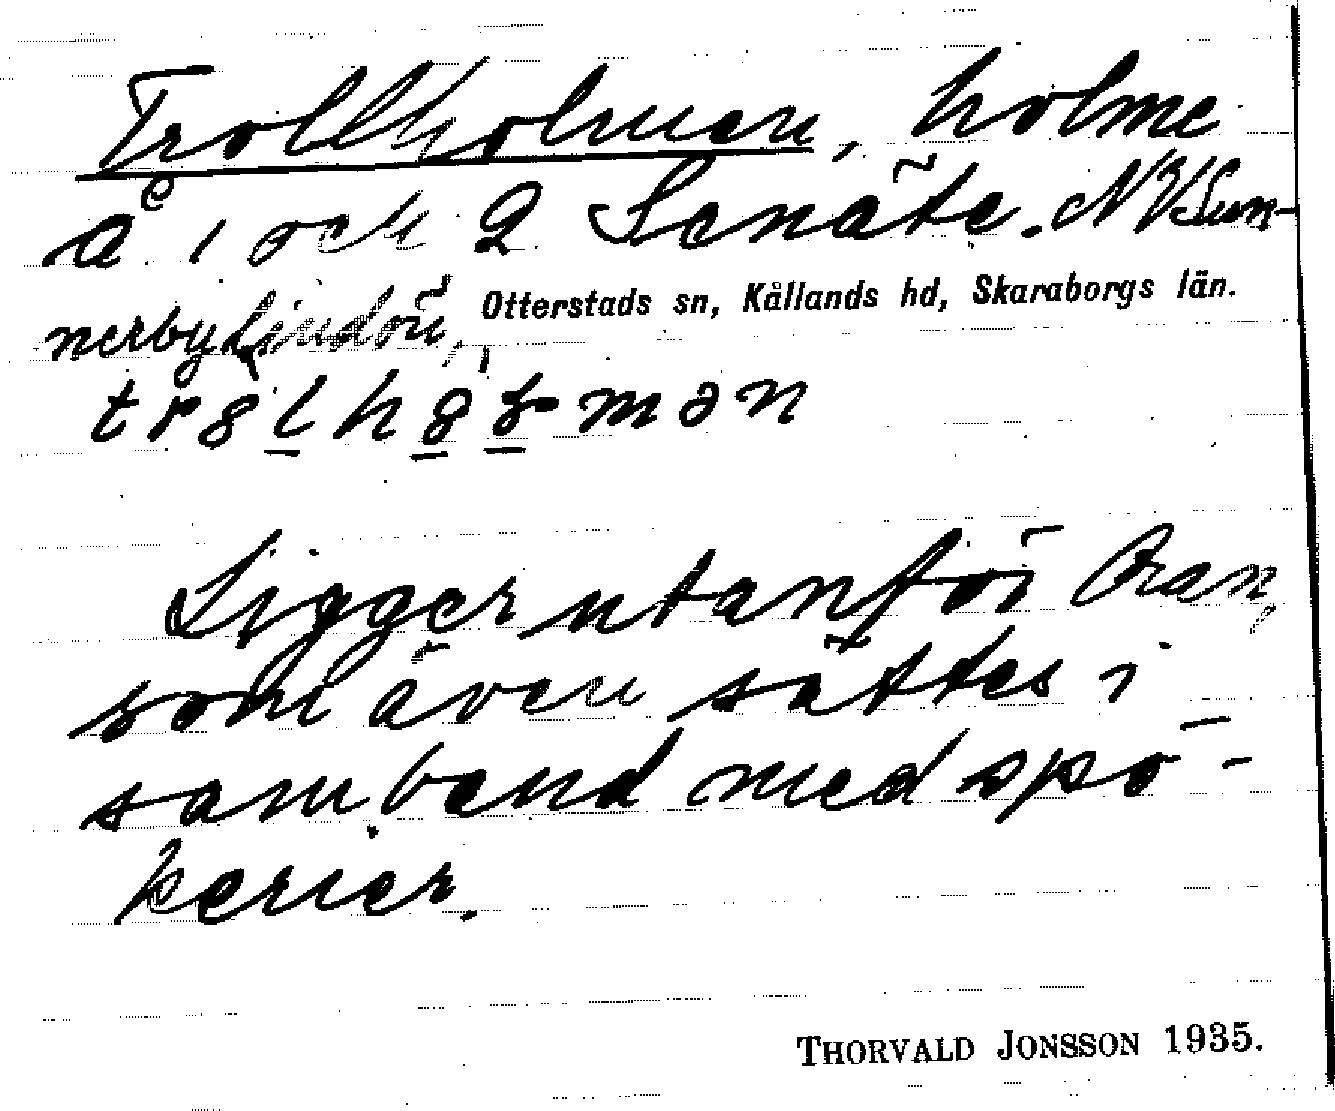 Trollholmen, holme
å 1 och 2 Senäte. NV Sun-
nerby Lindön,
Otterstads sn, Kållands hd, Skaraborgs län.
Ligger utanför Aran,
som även sättes i
samband med spö-
kerier.
THORVALD JONSSON 1935.